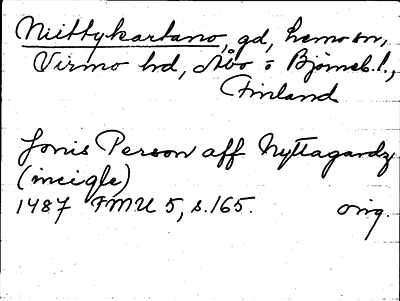 Niittykartano, gd, Lemo sn,
Virmo hd, Åbo o Björneb. l.,
Finland
Jönis Person aff Nyttagardz
(incigle)
1487 FMU 5, s. 165. orig.